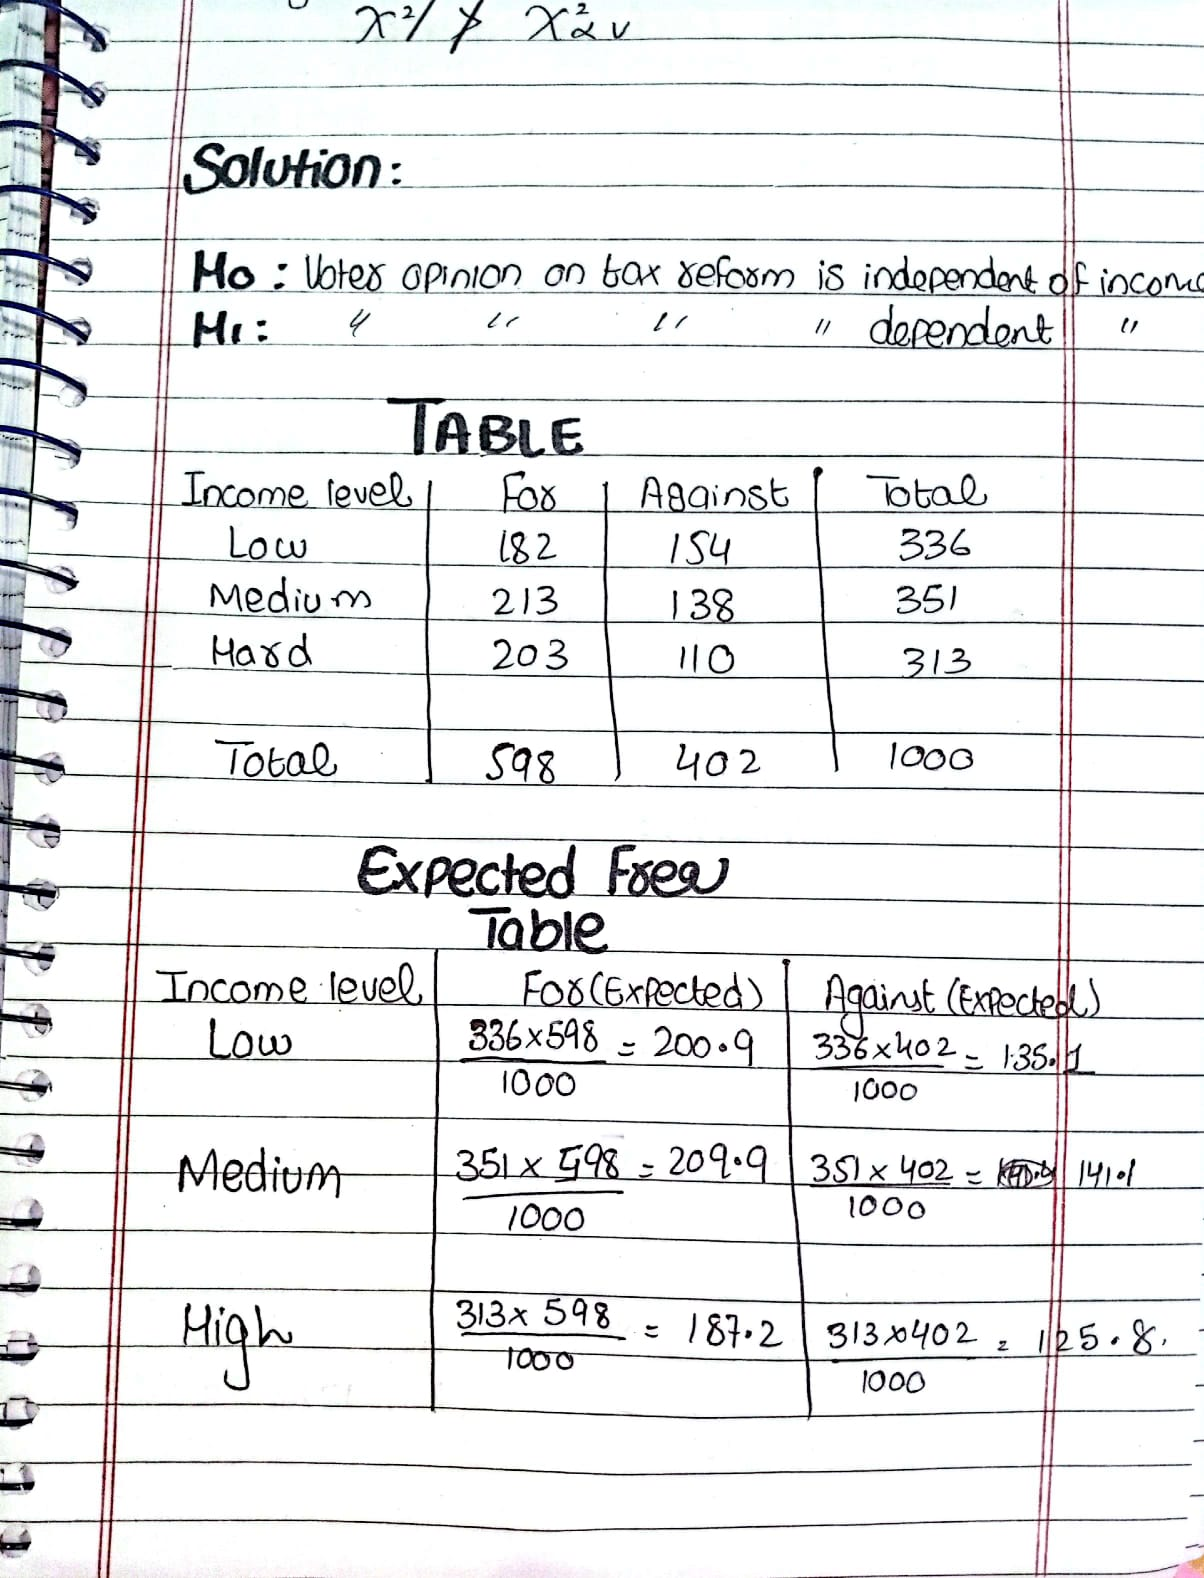 Solution:
Ho : Voter opinion on tax reform is independent of income
H1: " " " " dependent "
TABLE
Income level For Against Total
Low 182 154 336
Medium 213 138 351
Hard 203 110 313
Total 598 402 1000
Expected Freq
Table
Income level For (Expected) Against (Expected)
Low 336×598/1000 = 200.9 336×402/1000 = 135.1
Medium 351×598/1000 = 209.9 351×402/1000 = 141.1
High 313×598/1000 = 187.2 313×402/1000 = 125.8.